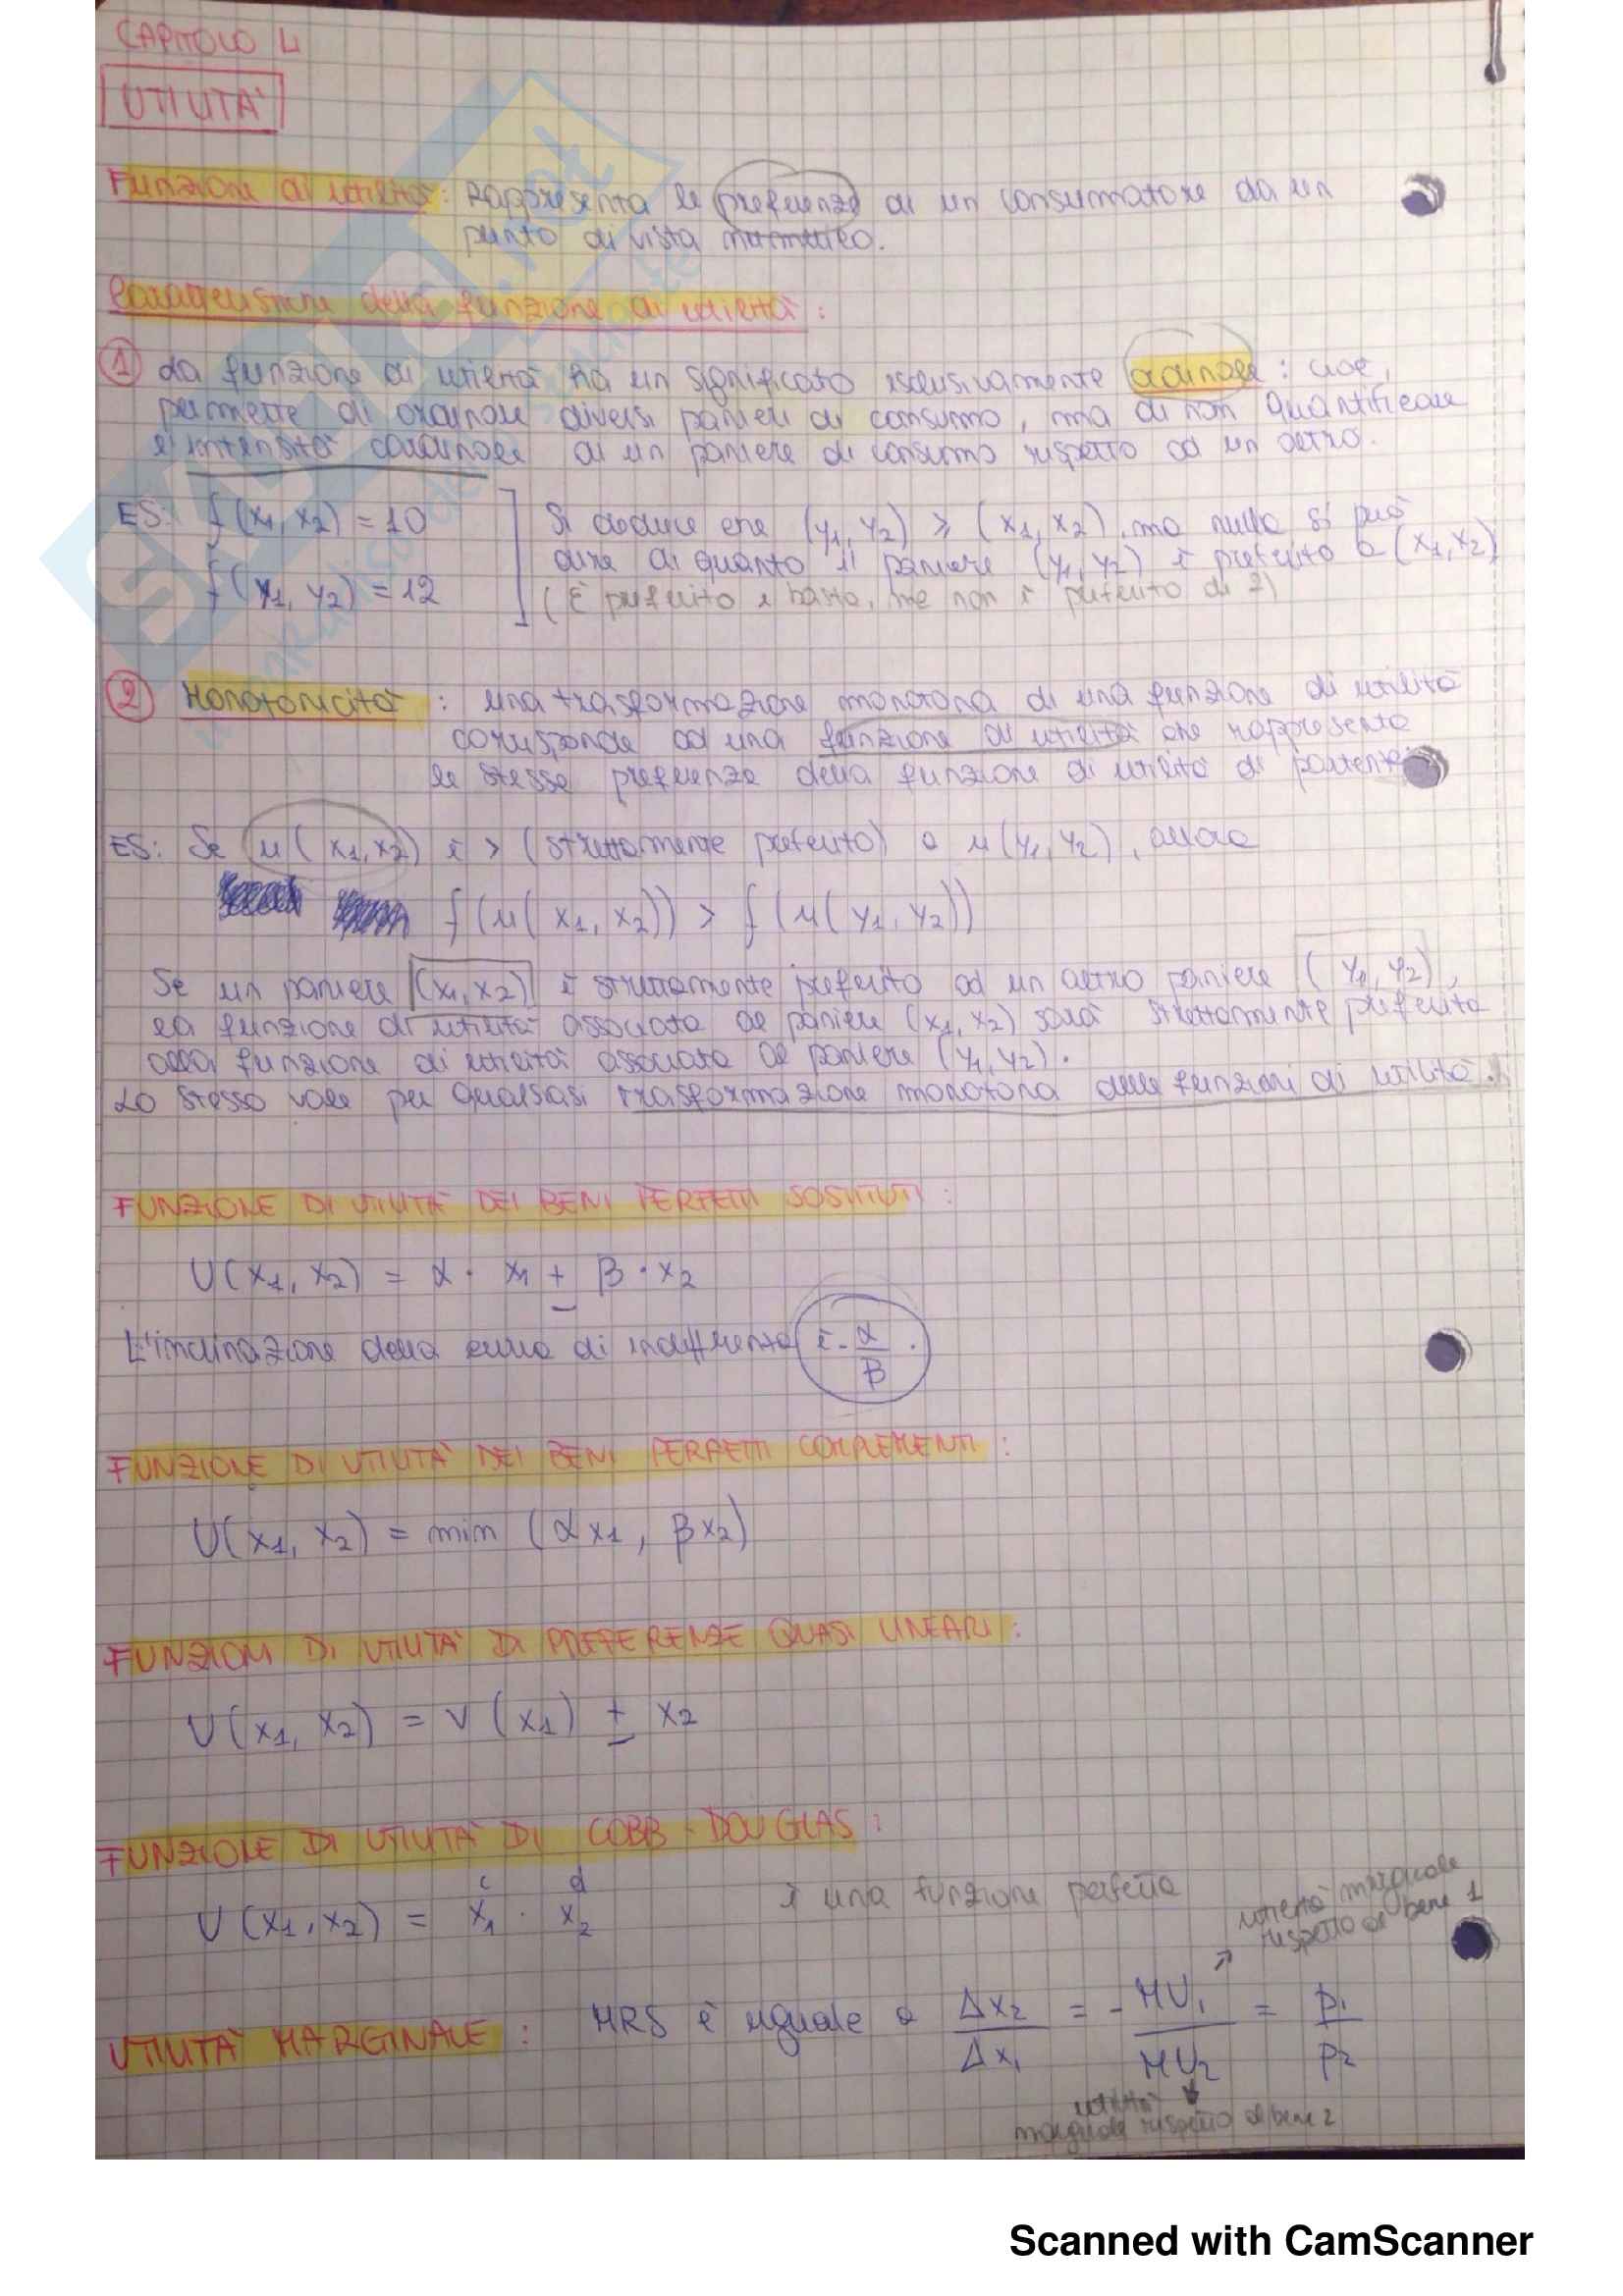 CAPITOLO 4
UTILITÀ
Funzione di utilità: Rappresenta le preferenze di un consumatore da un
punto di vista numerico.
Caratteristiche della funzione di utilità:
① La funzione di utilità ha un significato esclusivamente ordinale: cioè,
permette di ordinare diversi panieri di consumo, ma di non quantificare
l'intensità cardinale di un paniere di consumo rispetto ad un altro.
ES: f(x1, x2) = 10
f(y1, y2) = 12
Si deduce che (y1, y2) ≽ (x1, x2), ma nulla si può
dire di quanto il paniere (y1, y2) è preferito a (x1, x2)
(È preferito e basta, ma non è preferito di 2)
② Monotonicità: una trasformazione monotona di una funzione di utilità
corrisponde ad una funzione di utilità che rappresenta
le stesse preferenze della funzione di utilità di partenza
ES: Se u(x1, x2) è > (strettamente preferito) a u(y1, y2), allora
f(u(x1, x2)) > f(u(y1, y2))
Se un paniere (x1, x2) è strettamente preferito ad un altro paniere (y1, y2),
la funzione di utilità associata al paniere (x1, x2) sarà strettamente preferita
alla funzione di utilità associata al paniere (y1, y2).
Lo stesso vale per qualsiasi trasformazione monotona delle funzioni di utilità.
FUNZIONE DI UTILITÀ DEI BENI PERFETTI SOSTITUTI:
U(x1, x2) = α · x1 ± β · x2
L'inclinazione della curva di indifferenza è - α/β.
FUNZIONE DI UTILITÀ DEI BENI PERFETTI COMPLEMENTI:
U(x1, x2) = min (αx1, βx2)
FUNZIONI DI UTILITÀ DI PREFERENZE QUASI LINEARI:
U(x1, x2) = v(x1) ± x2
FUNZIONE DI UTILITÀ DI COBB-DOUGLAS:
U(x1, x2) = x1^c · x2^d
è una funzione perfetta
utilità marginale
rispetto al bene 1
UTILITÀ MARGINALE: MRS è uguale a Δx2/Δx1 = - MU1/MU2 = p1/p2
utilità
marginale rispetto al bene 2
Scanned with CamScanner